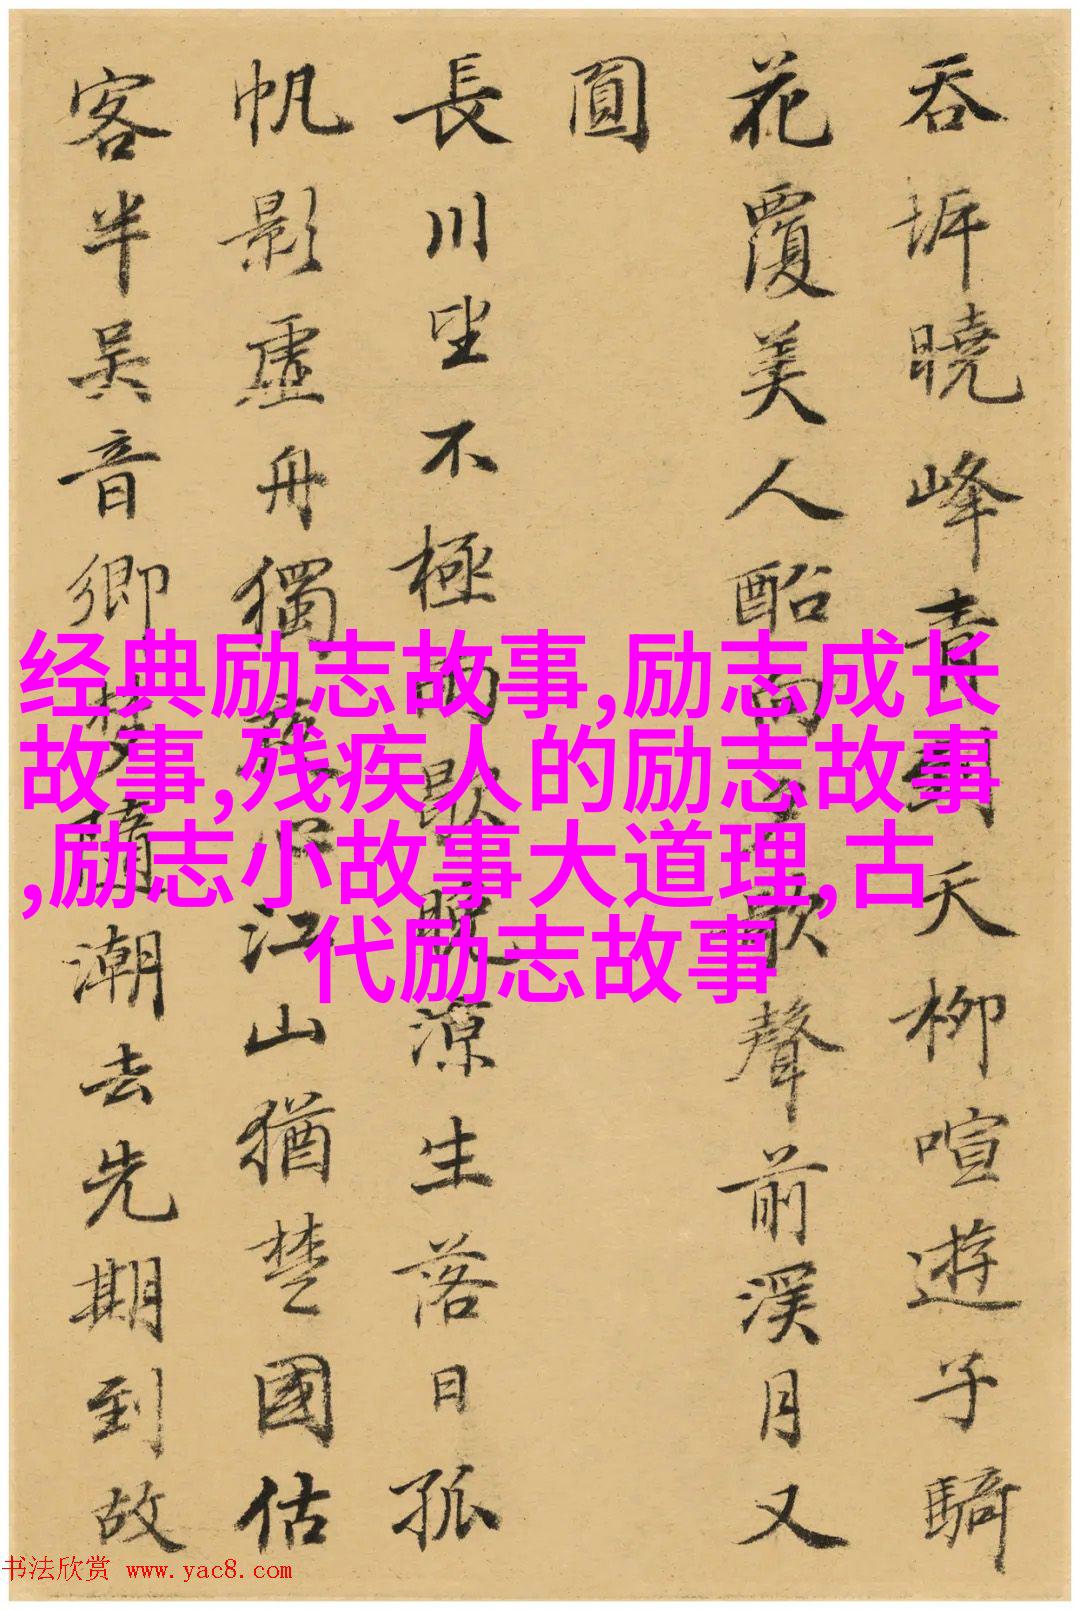 吞圻曉峰青圍天柳喧遊子騎
花覆美人酩向來歌聲前溪月又
圓
長川坐不極雨歇晚涼生落日孤
帆影虛舟獨夜心江山猶楚國估
客半吳音鄉夢隨潮去先期到故
经典励志故事,励志成长
故事,残疾人的励志故事
,励志小故事大道理,古
代励志故事
书法欣赏 www.yac8.com